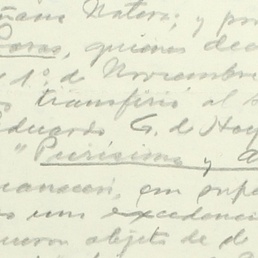 Natera; y por
Casas, quienes de
1º de Noviembre
transfirió al
Eduardo G. de Hoy
"Purísima y A
con supe
una excedencia
objeto de de